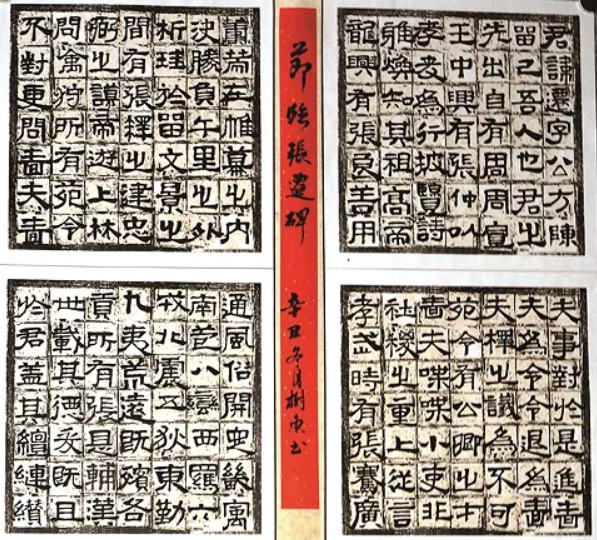 君諱遷字公方陳
留己吾人也君之
先出自有周周宣
王中興有張仲以
孝友為行披覽詩
雅煥知其祖高帝
龍興有張良善用
籌策在帷幕之內
決勝負千里之外
析珪於留文景之
間有張釋之建忠
弼之謨帝遊上林
問禽狩所有苑令
不對更問嗇夫嗇
夫事對於是進嗇
夫為令令退為嗇
夫釋之議為不可
苑令有公卿之才
嗇夫喋喋小吏非
社稷之重上從言
孝武時有張騫廣
通風俗開定畿寓
南苞八蠻西羈六
戎北震五狄東勤
九夷荒遠既殯各
貢所有張是輔漢
世載其德爰既且
於君蓋其繵縺纘
節臨張遷碑
辛丑冬月樹书